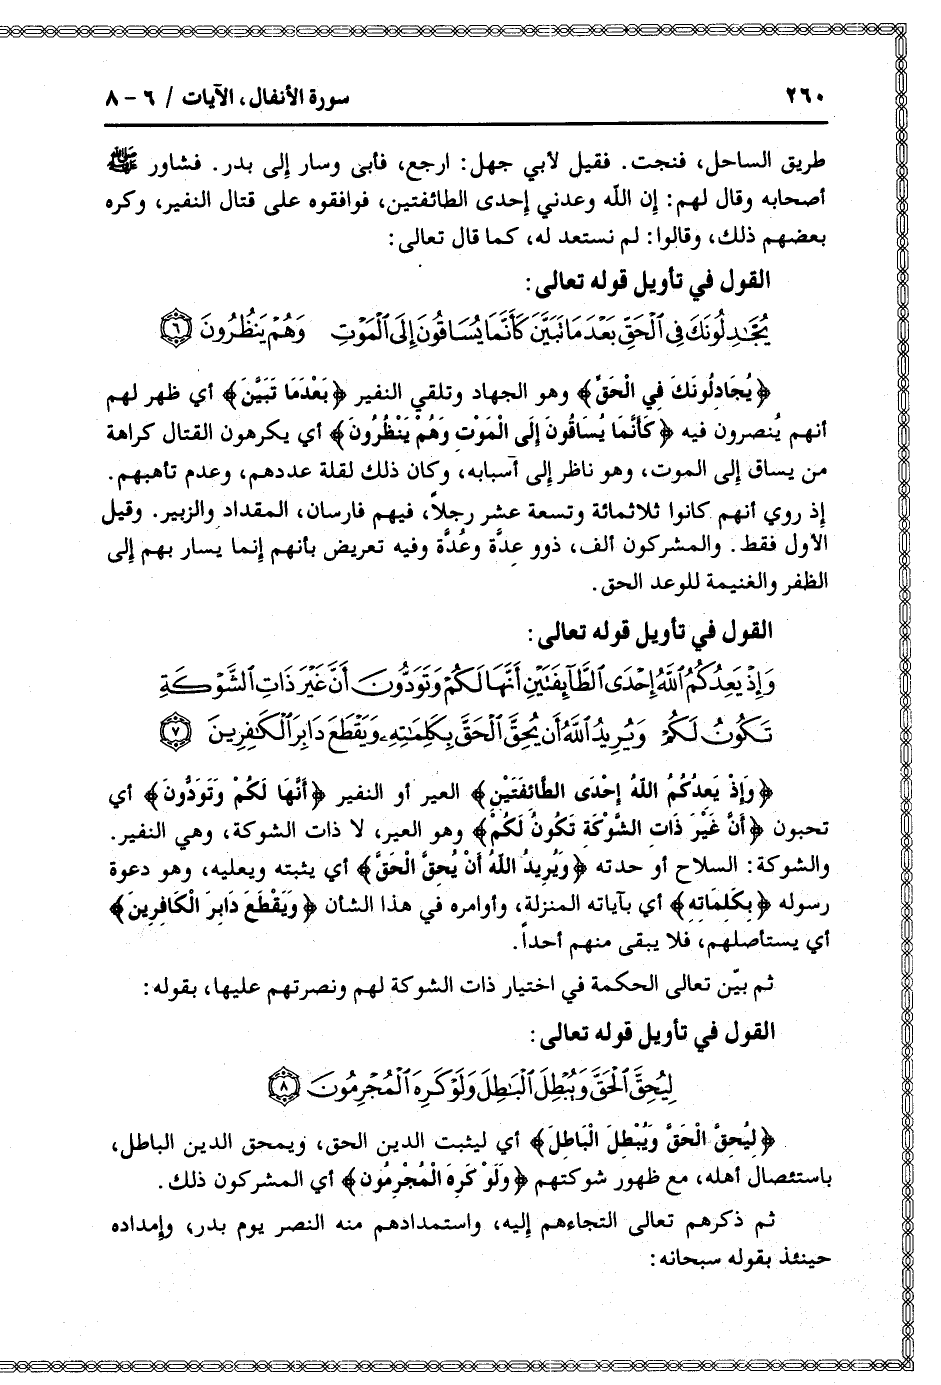 ٢٦٠ سورة الأنفال، الآيات / ٦ - ٨
طريق الساحل، فنجت. فقيل لأبي جهل: ارجع، فأبى وسار إلى بدر. فشاور ﷺ
أصحابه وقال لهم: إن اللّه وعدني إحدى الطائفتين، فوافقوه على قتال النفير، وكره
بعضهم ذلك، وقالوا: لم نستعد له، كما قال تعالى:
القول في تأويل قوله تعالى:
يُجَٰدِلُونَكَ فِي ٱلْحَقِّ بَعْدَ مَا تَبَيَّنَ كَأَنَّمَا يُسَاقُونَ إِلَى ٱلْمَوْتِ وَهُمْ يَنظُرُونَ ٦
﴿يُجَادِلُونَكَ فِي الْحَقِّ﴾ وهو الجهاد وتلقي النفير ﴿بَعْدَمَا تَبَيَّنَ﴾ أي ظهر لهم
أنهم يُنصرون فيه ﴿كَأَنَّمَا يُسَاقُونَ إِلَى الْمَوْتِ وَهُمْ يَنْظُرُونَ﴾ أي يكرهون القتال كراهة
من يساق إلى الموت، وهو ناظر إلى أسبابه، وكان ذلك لقلة عددهم، وعدم تأهبهم.
إذ روي أنهم كانوا ثلاثمائة وتسعة عشر رجلاً، فيهم فارسان، المقداد والزبير. وقيل
الأول فقط. والمشركون ألف، ذوو عِدَّة وعُدَّة وفيه تعريض بأنهم إنما يسار بهم إلى
الظفر والغنيمة للوعد الحق.
القول في تأويل قوله تعالى:
وَإِذْ يَعِدُكُمُ ٱللَّهُ إِحْدَى ٱلطَّآئِفَتَيْنِ أَنَّهَا لَكُمْ وَتَوَدُّونَ أَنَّ غَيْرَ ذَاتِ ٱلشَّوْكَةِ
تَكُونُ لَكُمْ وَيُرِيدُ ٱللَّهُ أَن يُحِقَّ ٱلْحَقَّ بِكَلِمَٰتِهِۦ وَيَقْطَعَ دَابِرَ ٱلْكَٰفِرِينَ ٧
﴿وَإِذْ يَعِدُكُمُ اللّهُ إِحْدَى الطَّائِفَتَيْنِ﴾ العير أو النفير ﴿أَنَّهَا لَكُمْ وَتَوَدُّونَ﴾ أي
تحبون ﴿أَنَّ غَيْرَ ذَاتِ الشَّوْكَةِ تَكُونُ لَكُمْ﴾ وهو العير، لا ذات الشوكة، وهي النفير.
والشوكة: السلاح أو حدته ﴿وَيُرِيدُ اللّهُ أَنْ يُحِقَّ الْحَقَّ﴾ أي يثبته ويعليه، وهو دعوة
رسوله ﴿بِكَلِمَاتِهِ﴾ أي بآياته المنزلة، وأوامره في هذا الشأن ﴿وَيَقْطَعَ دَابِرَ الْكَافِرِينَ﴾
أي يستأصلهم، فلا يبقى منهم أحداً.
ثم بيّن تعالى الحكمة في اختيار ذات الشوكة لهم ونصرتهم عليها، بقوله:
القول في تأويل قوله تعالى:
لِيُحِقَّ ٱلْحَقَّ وَيُبْطِلَ ٱلْبَٰطِلَ وَلَوْ كَرِهَ ٱلْمُجْرِمُونَ ٨
﴿لِيُحِقَّ الْحَقَّ وَيُبْطِلَ الْبَاطِلَ﴾ أي ليثبت الدين الحق، ويمحق الدين الباطل،
باستئصال أهله، مع ظهور شوكتهم ﴿وَلَوْ كَرِهَ الْمُجْرِمُون﴾ أي المشركون ذلك.
ثم ذكرهم تعالى التجاءهم إليه، واستمدادهم منه النصر يوم بدر، وإمداده
حينئذ بقوله سبحانه: